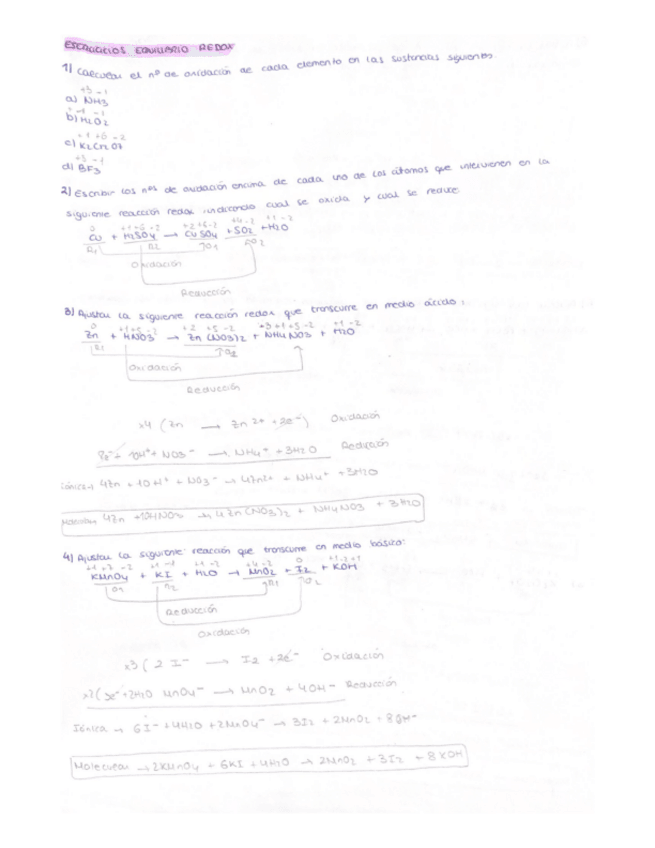 EJERCICIOS EQUILIBRIO REDOX
1) Calcular el nº de oxidación de cada elemento en las sustancias siguientes.
+3 -1
a) NH3
+1 -1
b) H2O2
+1 +6 -2
c) K2Cr2O7
+3 -1
d) BF3
2) Escribir los nos de oxidación encima de cada uno de los átomos que intervienen en la
siguiente reacción redox indicando cual se oxida y cual se reduce:
0 +1+6-2 +2+6-2 +4-2 +1-2
Cu + H2SO4 → CuSO4 + SO2 + H2O
R1 R2 O1 O2
Oxidación
Reducción
3) Ajustar la siguiente reacción redox que transcurre en medio ácido:
0 +1+5-2 +2 +5-2 +1-2
Zn + HNO3 → Zn(NO3)2 + NH4NO3 + H2O
R1
Oxidación
Reducción
x4 ( Zn → Zn 2+ + 2e-) Oxidación
8e- + 10H+ + NO3- → NH4+ + 3H2O Reducción
Iónica → 4Zn + 10H+ + NO3- → 4Zn2+ + NH4+ + 3H2O
Molecular 4Zn + 10HNO3 → 4Zn(NO3)2 + NH4NO3 + 3H2O
4) Ajustar la siguiente reacción que transcurre en medio básico:
+1+7-2 +1-1 +1-2 +4-2 0 +1-2+1
KMnO4 + KI + H2O → MnO2 + I2 + KOH
O1 R2 R1 O2
Reducción
Oxidación
x3 ( 2 I- → I2 + 2e- Oxidación
x2( 3e- + 2H2O MnO4- → MnO2 + 4OH- Reducción
Iónica → 6I- + 4H2O + 2MnO4- → 3I2 + 2MnO2 + 8OH-
Molecular → 2KMnO4 + 6KI + 4H2O → 2MnO2 + 3I2 + 8KOH